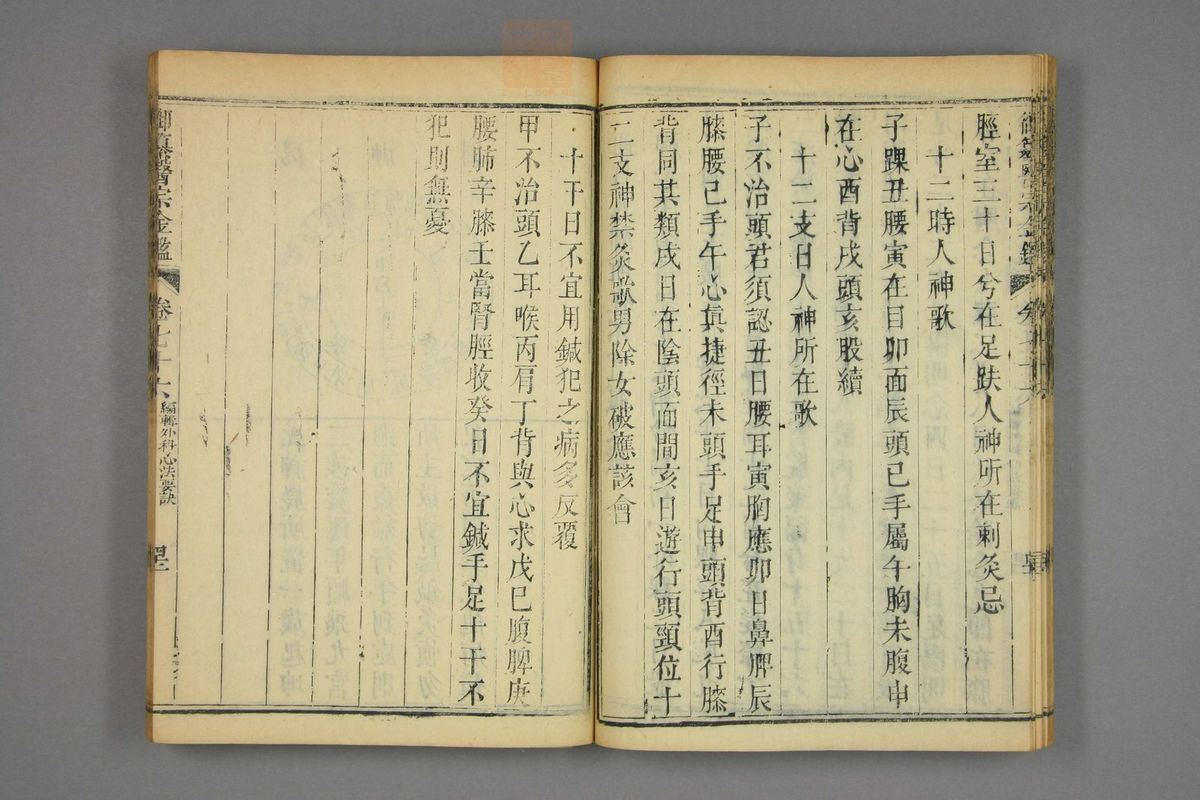 脛室三十日兮在足趺人神所在刺灸忌
十二時人神歌
子踝丑腰寅在目卯面辰頭巳手屬午胸未腹申
在心酉背戌頭亥股續
十二支日人神所在歌
子不治頭君須認丑日腰耳寅胸應卯日鼻脾辰
膝腰巳手午心真捷徑未頭手足申頭背酉行膝
背同其類戌日在陰頭面間亥日遊行頭頸位十
二支神禁灸歌男除女破應該會
十干日不宜用鍼犯之病多反覆
甲不治頭乙耳喉丙肩丁背與心求戊己腹脾庚
腰肺辛膝壬當腎脛收癸日不宜鍼手足十干不
犯則無憂
御纂醫宗金鑑
卷七十六
編輯外科心法要訣